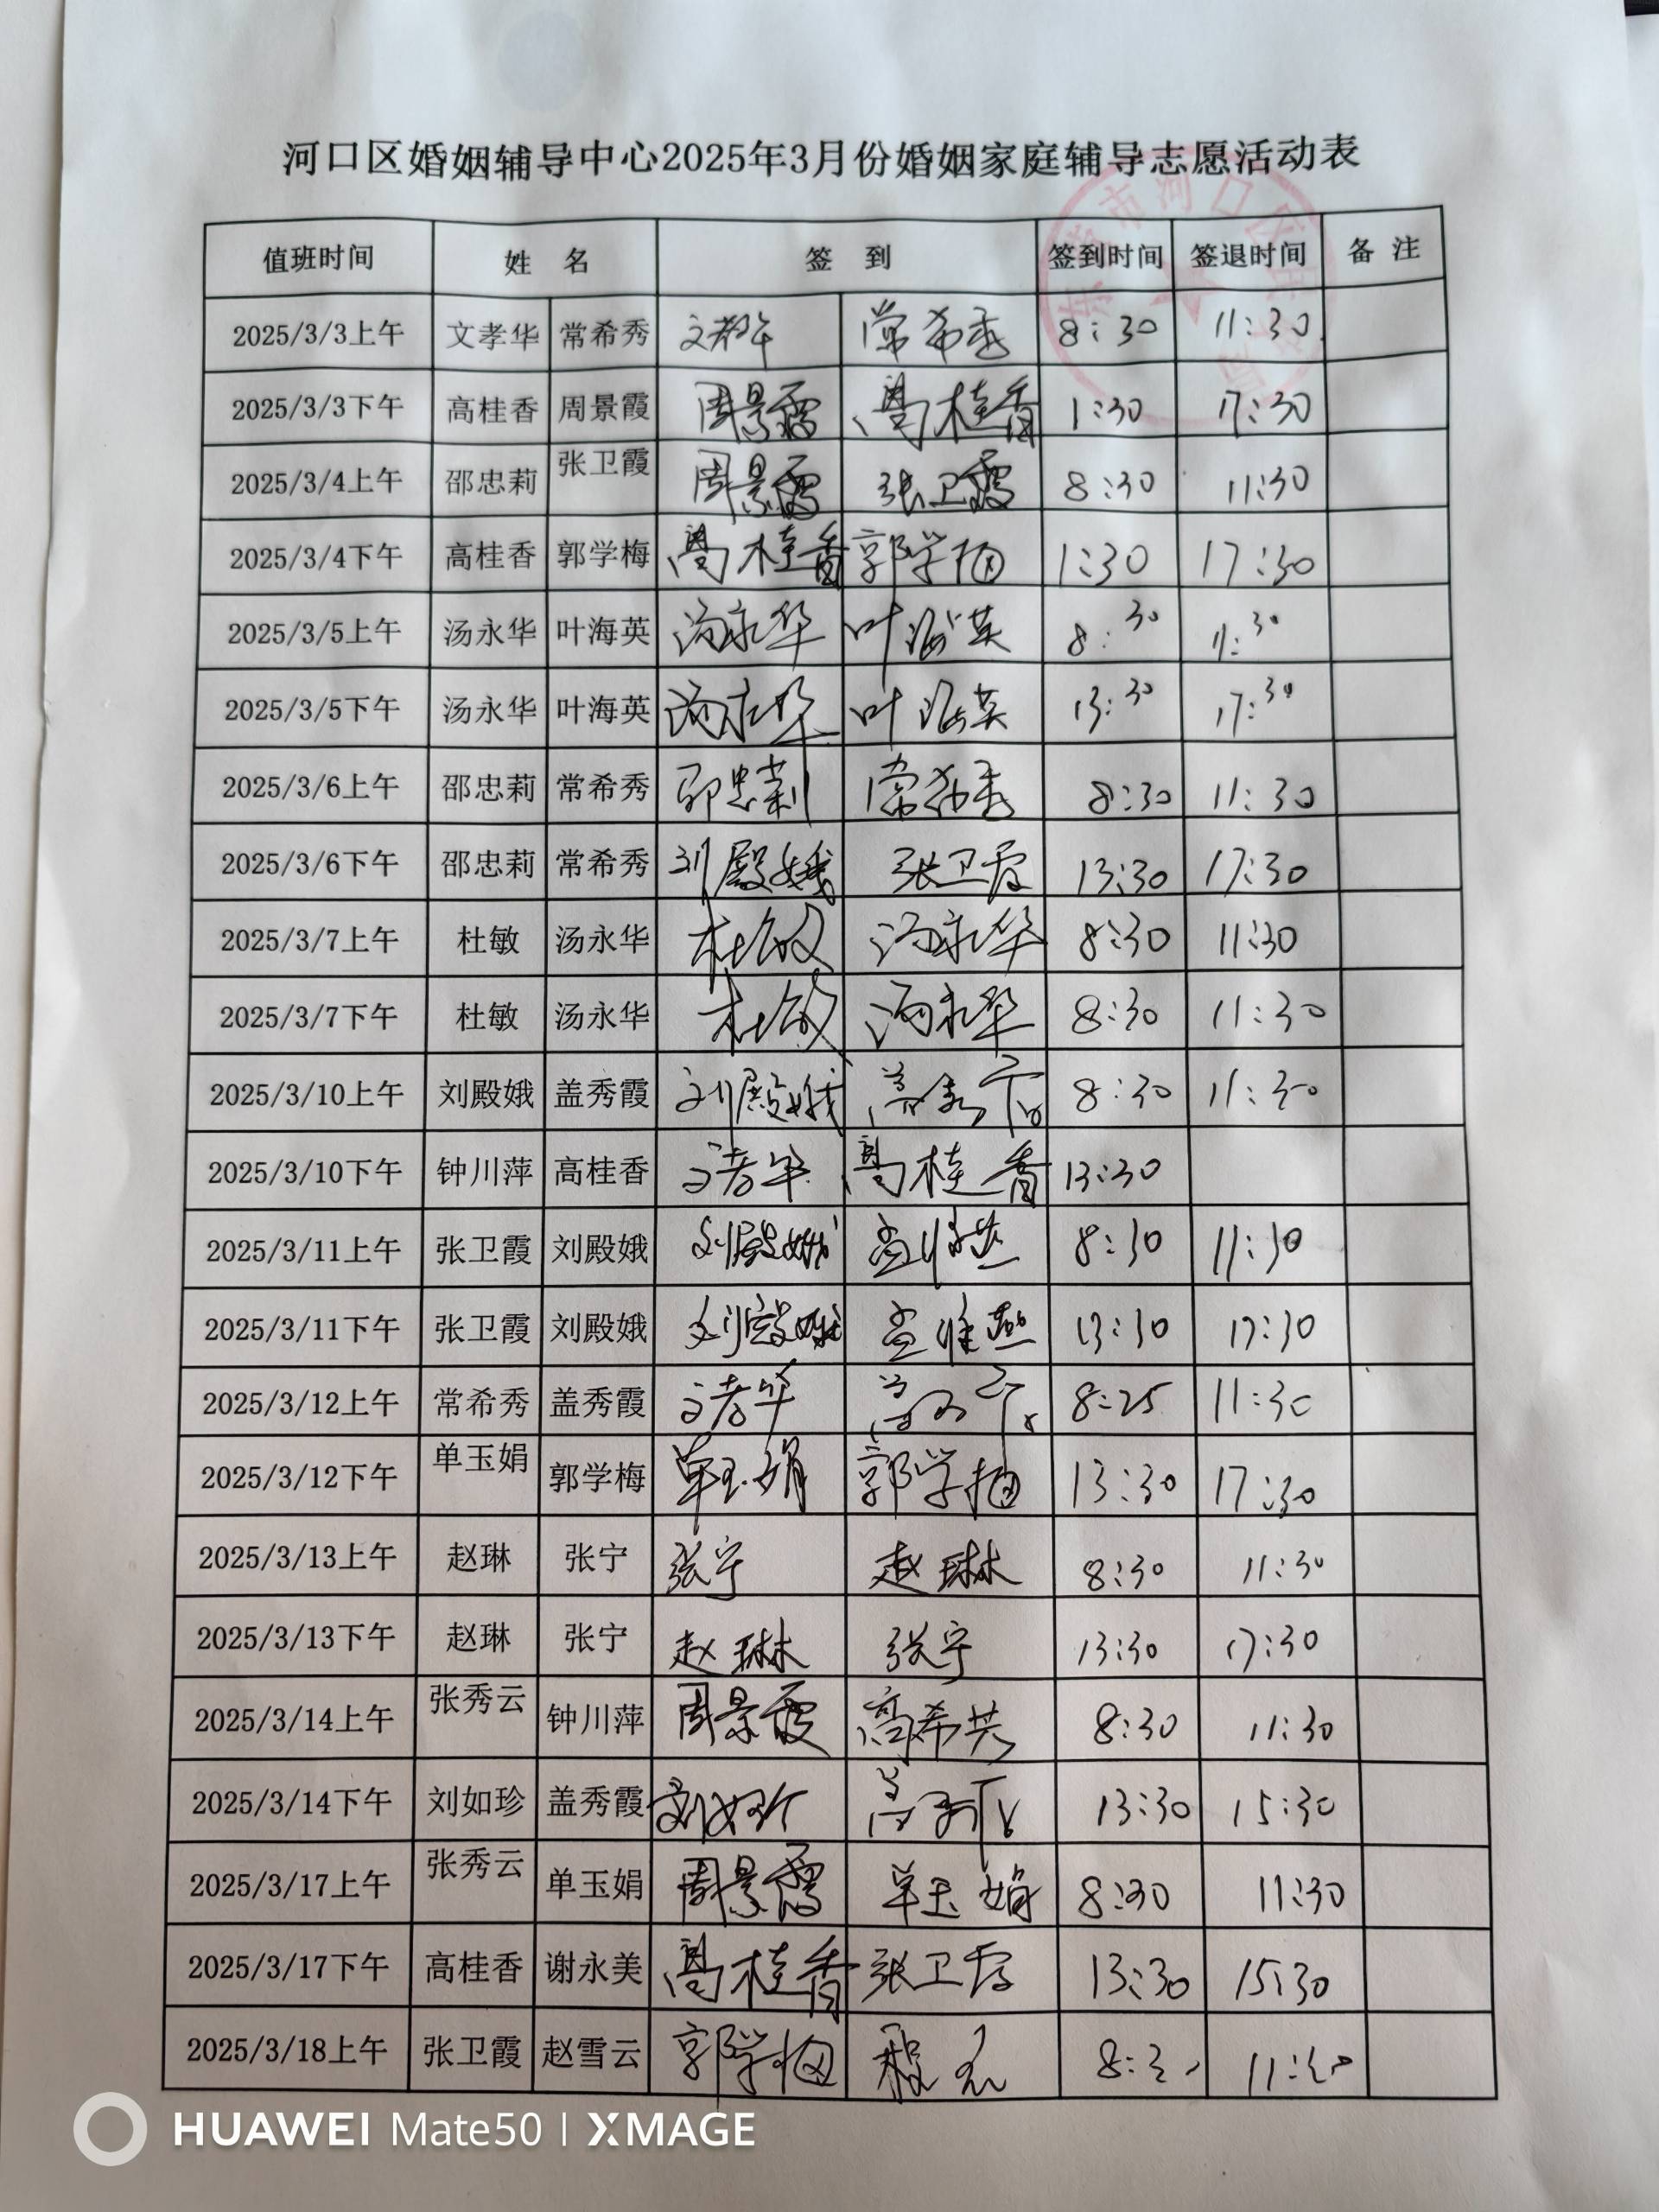 河口区婚姻辅导中心2025年3月份婚姻家庭辅导志愿活动表
值班时间 姓 名 签 到 签到时间 签退时间 备 注
2025/3/3上午 文孝华 常希秀 文孝华 常希秀 8:30 11:30
2025/3/3下午 高桂香 周景霞 周景霞 高桂香 1:30 17:30
2025/3/4上午 邵忠莉 张卫霞 周景霞 张卫霞 8:30 11:30
2025/3/4下午 高桂香 郭学梅 高桂香 郭学梅 1:30 17:30
2025/3/5上午 汤永华 叶海英 汤永华 叶海英 8:30 11:30
2025/3/5下午 汤永华 叶海英 汤永华 叶海英 13:30 17:30
2025/3/6上午 邵忠莉 常希秀 邵忠莉 常希秀 8:30 11:30
2025/3/6下午 邵忠莉 常希秀 刘殿娥 张卫霞 13:30 17:30
2025/3/7上午 杜敏 汤永华 杜敏 汤永华 8:30 11:30
2025/3/7下午 杜敏 汤永华 杜敏 汤永华 8:30 11:30
2025/3/10上午 刘殿娥 盖秀霞 刘殿娥 盖秀霞 8:30 11:30
2025/3/10下午 钟川萍 高桂香 文孝华 高桂香 13:30
2025/3/11上午 张卫霞 刘殿娥 刘殿娥 8:30 11:30
2025/3/11下午 张卫霞 刘殿娥 刘殿娥 13:30 17:30
2025/3/12上午 常希秀 盖秀霞 文孝华 盖秀霞 8:25 11:30
2025/3/12下午 单玉娟 郭学梅 单玉娟 郭学梅 13:30 17:30
2025/3/13上午 赵琳 张宁 张宁 赵琳 8:30 11:30
2025/3/13下午 赵琳 张宁 赵琳 张宁 13:30 17:30
2025/3/14上午 张秀云 钟川萍 周景霞 8:30 11:30
2025/3/14下午 刘如珍 盖秀霞 刘如珍 盖秀霞 13:30 15:30
2025/3/17上午 张秀云 单玉娟 周景霞 单玉娟 8:30 11:30
2025/3/17下午 高桂香 谢永美 高桂香 张卫霞 13:30 15:30
2025/3/18上午 张卫霞 赵雪云 郭学梅 8:30 11:30
HUAWEI Mate50 | XMAGE